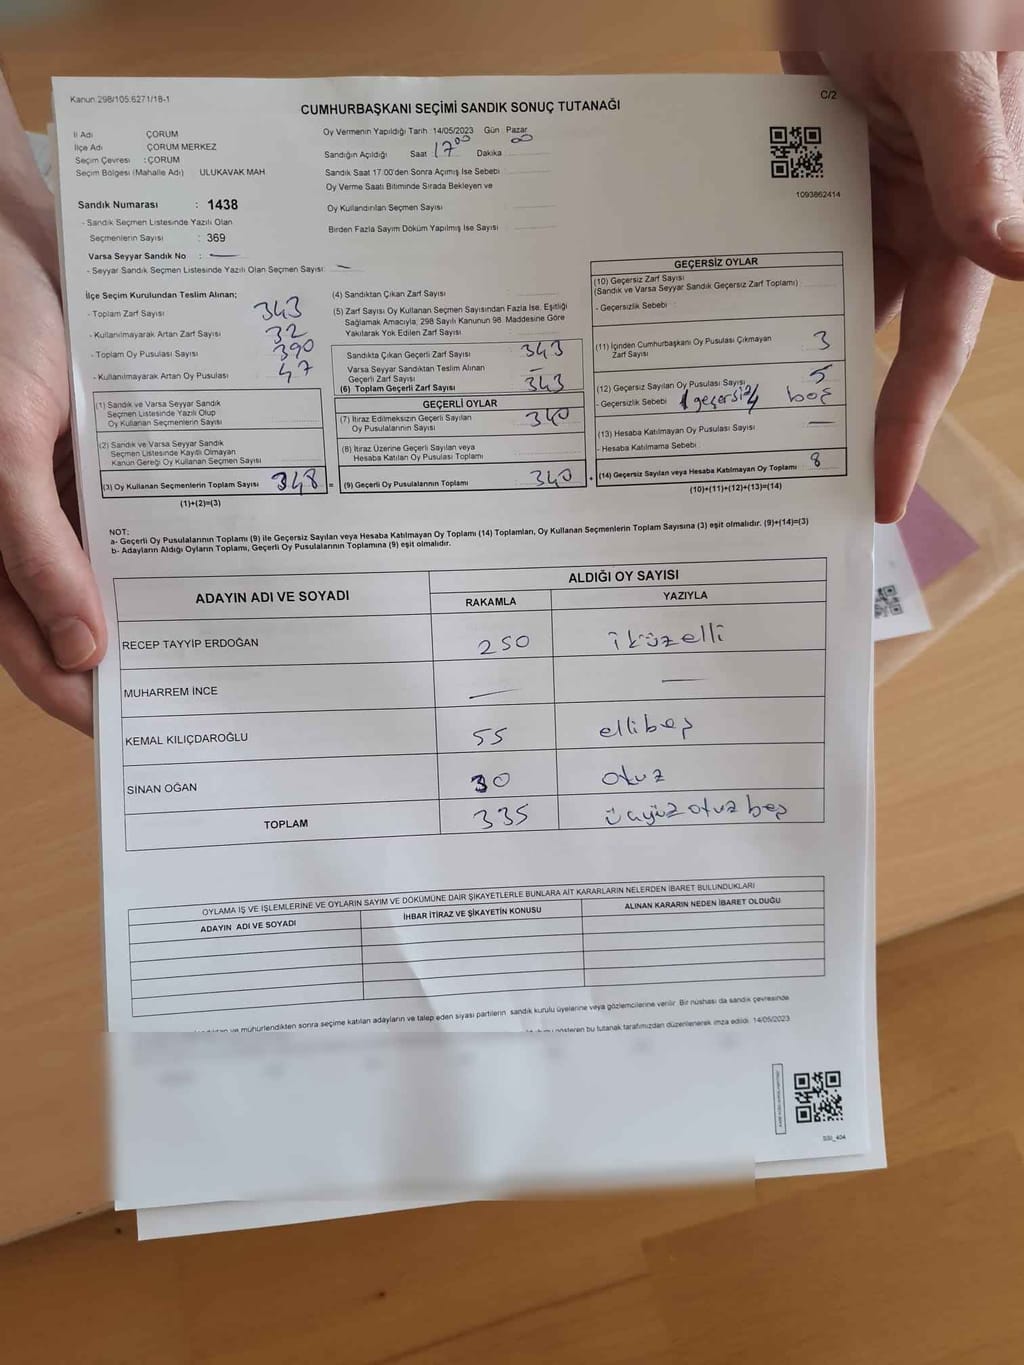 Kanun:298/105:6271/18-1
C/2
CUMHURBAŞKANI SEÇİMİ SANDIK SONUÇ TUTANAĞI
İl Adı ÇORUM
İlçe Adı ÇORUM MERKEZ
Seçim Çevresi : ÇORUM
Seçim Bölgesi (Mahalle Adı) ULUKAVAK MAH
Oy Vermenin Yapıldığı Tarih 14/05/2023 Gün Pazar
Sandığın Açıldığı Saat 17 00 Dakika 00
Sandık Saat 17.00'den Sonra Açımış İse Sebebi
Oy Verme Saati Bitiminde Sırada Bekleyen ve
Oy Kullandırılan Seçmen Sayısı
Birden Fazla Sayım Döküm Yapılmış İse Sayısı
1093862414
Sandık Numarası : 1438
- Sandık Seçmen Listesinde Yazılı Olan
Seçmenlerin Sayısı : 369
Varsa Seyyar Sandık No : —
- Seyyar Sandık Listesinde Yazılı Olan Seçmen Sayısı: —
İlçe Seçim Kurulundan Teslim Alınan;
- Toplam Zarf Sayısı 343
- Kullanılmayarak Artan Zarf Sayısı 32
- Toplam Oy Pusulası Sayısı 390
- Kullanılmayarak Artan Oy Pusulası 47
(1) Sandık ve Varsa Seyyar Sandık
Seçmen Listesinde Yazılı Olup
Oy Kullanan Seçmenlerin Sayısı
(2) Sandık ve Varsa Seyyar Sandık
Seçmen Listesinde Kayıtlı Olmayan
Kanun Gereği Oy Kullanan Seçmen Sayısı
(3) Oy Kullanan Seçmenlerin Toplam Sayısı 348
(1)+(2)=(3)
(4) Sandıktan Çıkan Zarf Sayısı
(5) Zarf Sayısı Oy Kullanan Seçmen Sayısından Fazla İse, Eşitliği
Sağlamak Amacıyla; 298 Sayılı Kanunun 98. Maddesine Göre
Yakılarak Yok Edilen Zarf Sayısı
Sandıkta Çıkan Geçerli Zarf Sayısı 343
Varsa Seyyar Sandıktan Teslim Alınan
Geçerli Zarf Sayısı —
(6) Toplam Geçerli Zarf Sayısı 343
GEÇERLİ OYLAR
(7) İtiraz Edilmeksizin Geçerli Sayılan
Oy Pusulalarının Sayısı 340
(8) İtiraz Üzerine Geçerli Sayılan veya
Hesaba Katılan Oy Pusulası Toplamı
= (9) Geçerli Oy Pusulalarının Toplamı 340 +
GEÇERSİZ OYLAR
(10) Geçersiz Zarf Sayısı
(Sandık ve Varsa Seyyar Sandık Geçersiz Zarf Toplamı)
- Geçersizlik Sebebi :
(11) İçinden Cumhurbaşkanı Oy Pusulası Çıkmayan
Zarf Sayısı 3
(12) Geçersiz Sayılan Oy Pusulası Sayısı 5
- Geçersizlik Sebebi 1 geçersiz 4 boş
(13) Hesaba Katılmayan Oy Pusulası Sayısı —
- Hesaba Katılmama Sebebi
(14) Geçersiz Sayılan veya Hesaba Katılmayan Oy Toplamı 8
(10)+(11)+(12)+(13)=(14)
NOT:
a- Geçerli Oy Pusulalarının Toplamı (9) ile Geçersiz Sayılan veya Hesaba Katılmayan Oy Toplamı (14) Toplamları, Oy Kullanan Seçmenlerin Toplam Sayısına (3) eşit olmalıdır. (9)+(14)=(3)
b- Adayların Aldığı Oyların Toplamı, Geçerli Oy Pusulalarının Toplamına (9) eşit olmalıdır.
ADAYIN ADI VE SOYADI ALDIĞI OY SAYISI
RAKAMLA YAZIYLA
RECEP TAYYİP ERDOĞAN 250 iküzelli
MUHARREM İNCE — —
KEMAL KILIÇDAROĞLU 55 ellibeş
SİNAN OĞAN 30 otuz
TOPLAM 335 üçyüzotuzbeş
OYLAMA İŞ VE İŞLEMLERİNE VE OYLARIN SAYIM VE DÖKÜMÜNE DAİR ŞİKAYETLERLE BUNLARA AİT KARARLARIN NELERDEN İBARET BULUNDUKLARI
ADAYIN ADI VE SOYADI İHBAR İTİRAZ VE ŞİKAYETİN KONUSU ALINAN KARARIN NEDEN İBARET OLDUĞU
ve mühürlendikten sonra seçime katılan adayların ve talep eden siyasi partilerin sandık kurulu üyelerine veya gözlemcilerine verilir. Bir nüshası da sandık çevresinde
gösteren bu tutanak tarafımızdan düzenlenerek imza edildi. 14/05/2023
SSI_404